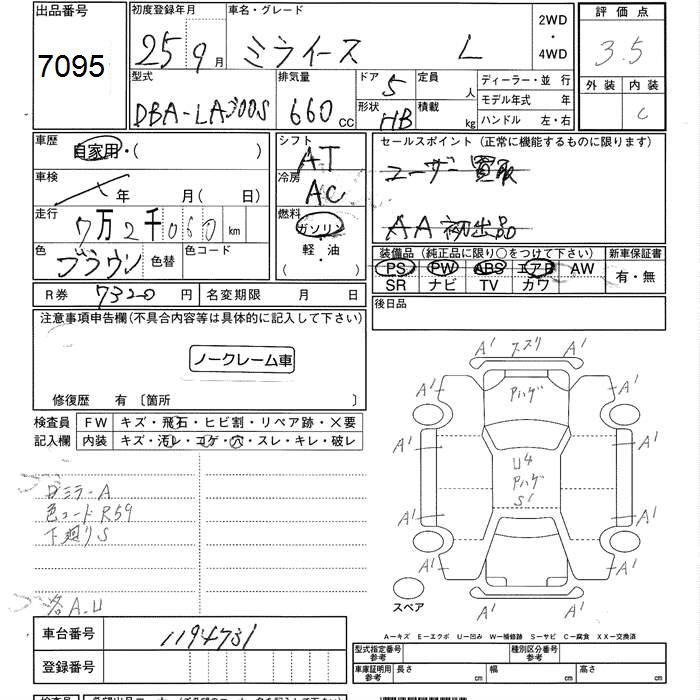 出品番号
7095
初度登録年月
25 9月
車名・グレード
ミライース L
2WD
・
4WD
評価点
3.5
外装 内装
C
型式
DBA-LA300S
排気量
660 CC
ドア 5
形状 HB
定員 人
積載 kg
ディーラー・並行
モデル年式 年
ハンドル 左・右
車歴
自家用・( )
車検
年 月( 日)
走行
7万2千060 km
色
ブラウン 色替
色コード
R券 7320 円
名変期限 月 日
シフト
AT
冷房
AC
燃料
ガソリン
軽・油
( )
セールスポイント(正常に機能するものに限ります)
ユーザー買取
AA初出品
装備品(純正品に限り○をつけて下さい)
新車保証書
PS PW ABS エアB AW
SR ナビ TV カワ
有・無
後日品
注意事項申告欄(不具合内容等は具体的に記入して下さい)
ノークレーム車
修復歴 有 〔箇所 〕
検査員
記入欄
FW キズ・飛石・ヒビ割・リペア跡・×要
内装 キズ・汚レ・コゲ・穴・スレ・キレ・破レ
ドミラーA
色コードR59
下廻りS
各A.U
A1 スズリ A1
A1 Aハゲ A1
A1 A1
U4
Aハゲ
S1
A1 A1
A1 A1
スペア
A1 A1
車台番号
1194731
登録番号
A―キズ E―エクボ U―凹み W―補修跡 S―サビ C―腐食 XX―交換済
型式指定番号
参考
種別区分番号
参考
車庫証明用
参考
長さ cm 幅 cm 高さ cm